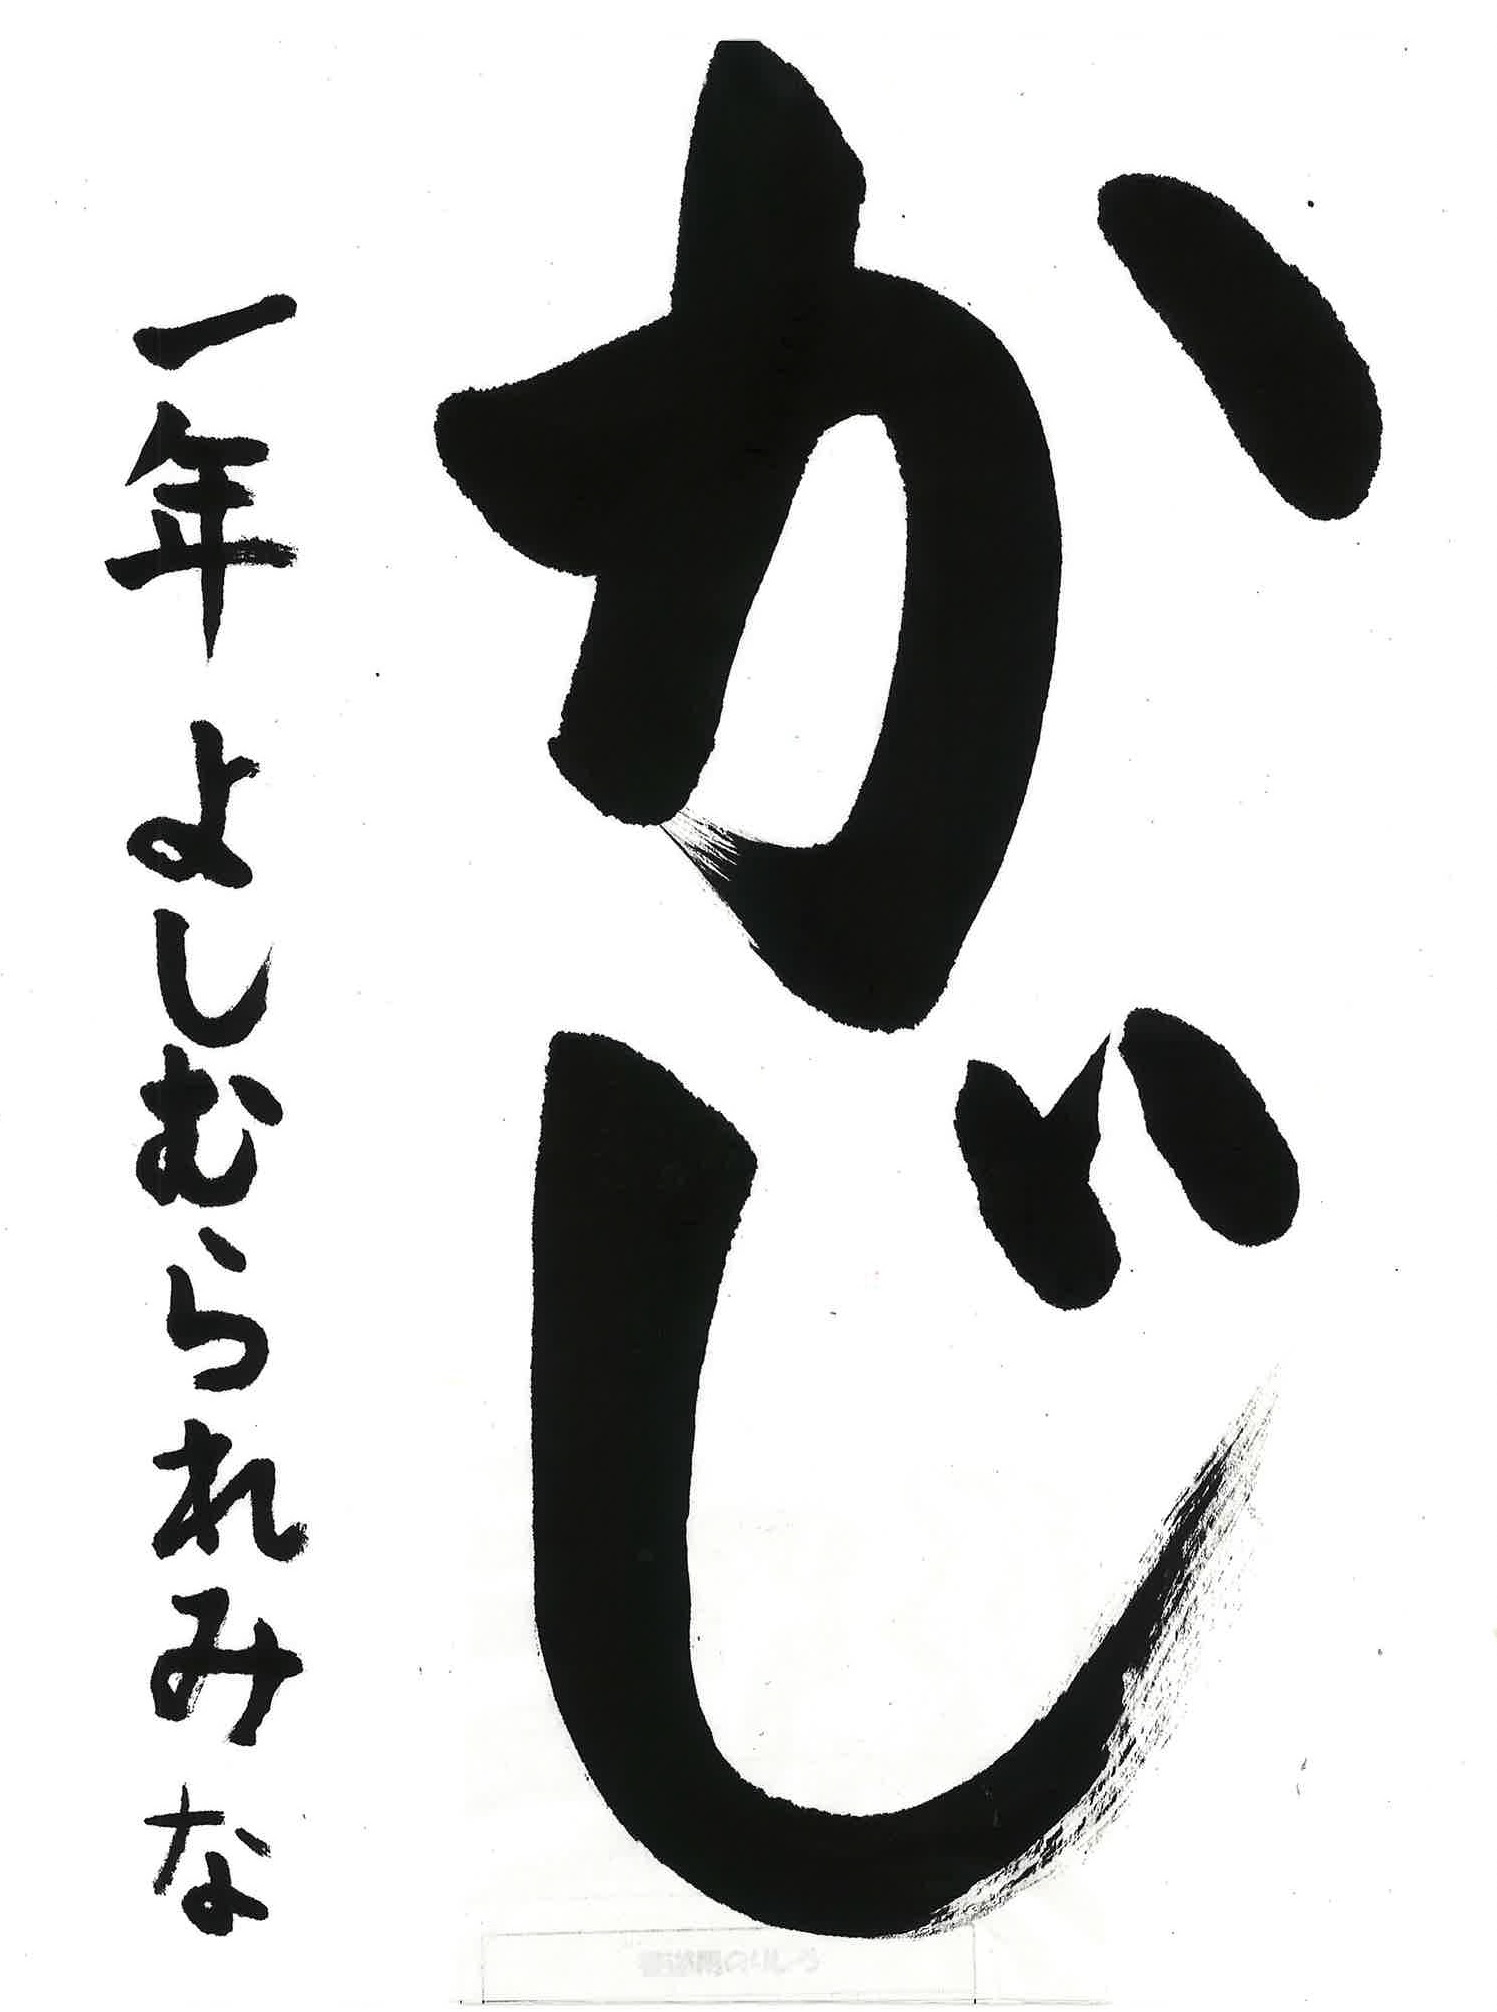 かじ
一年 よしむられみな